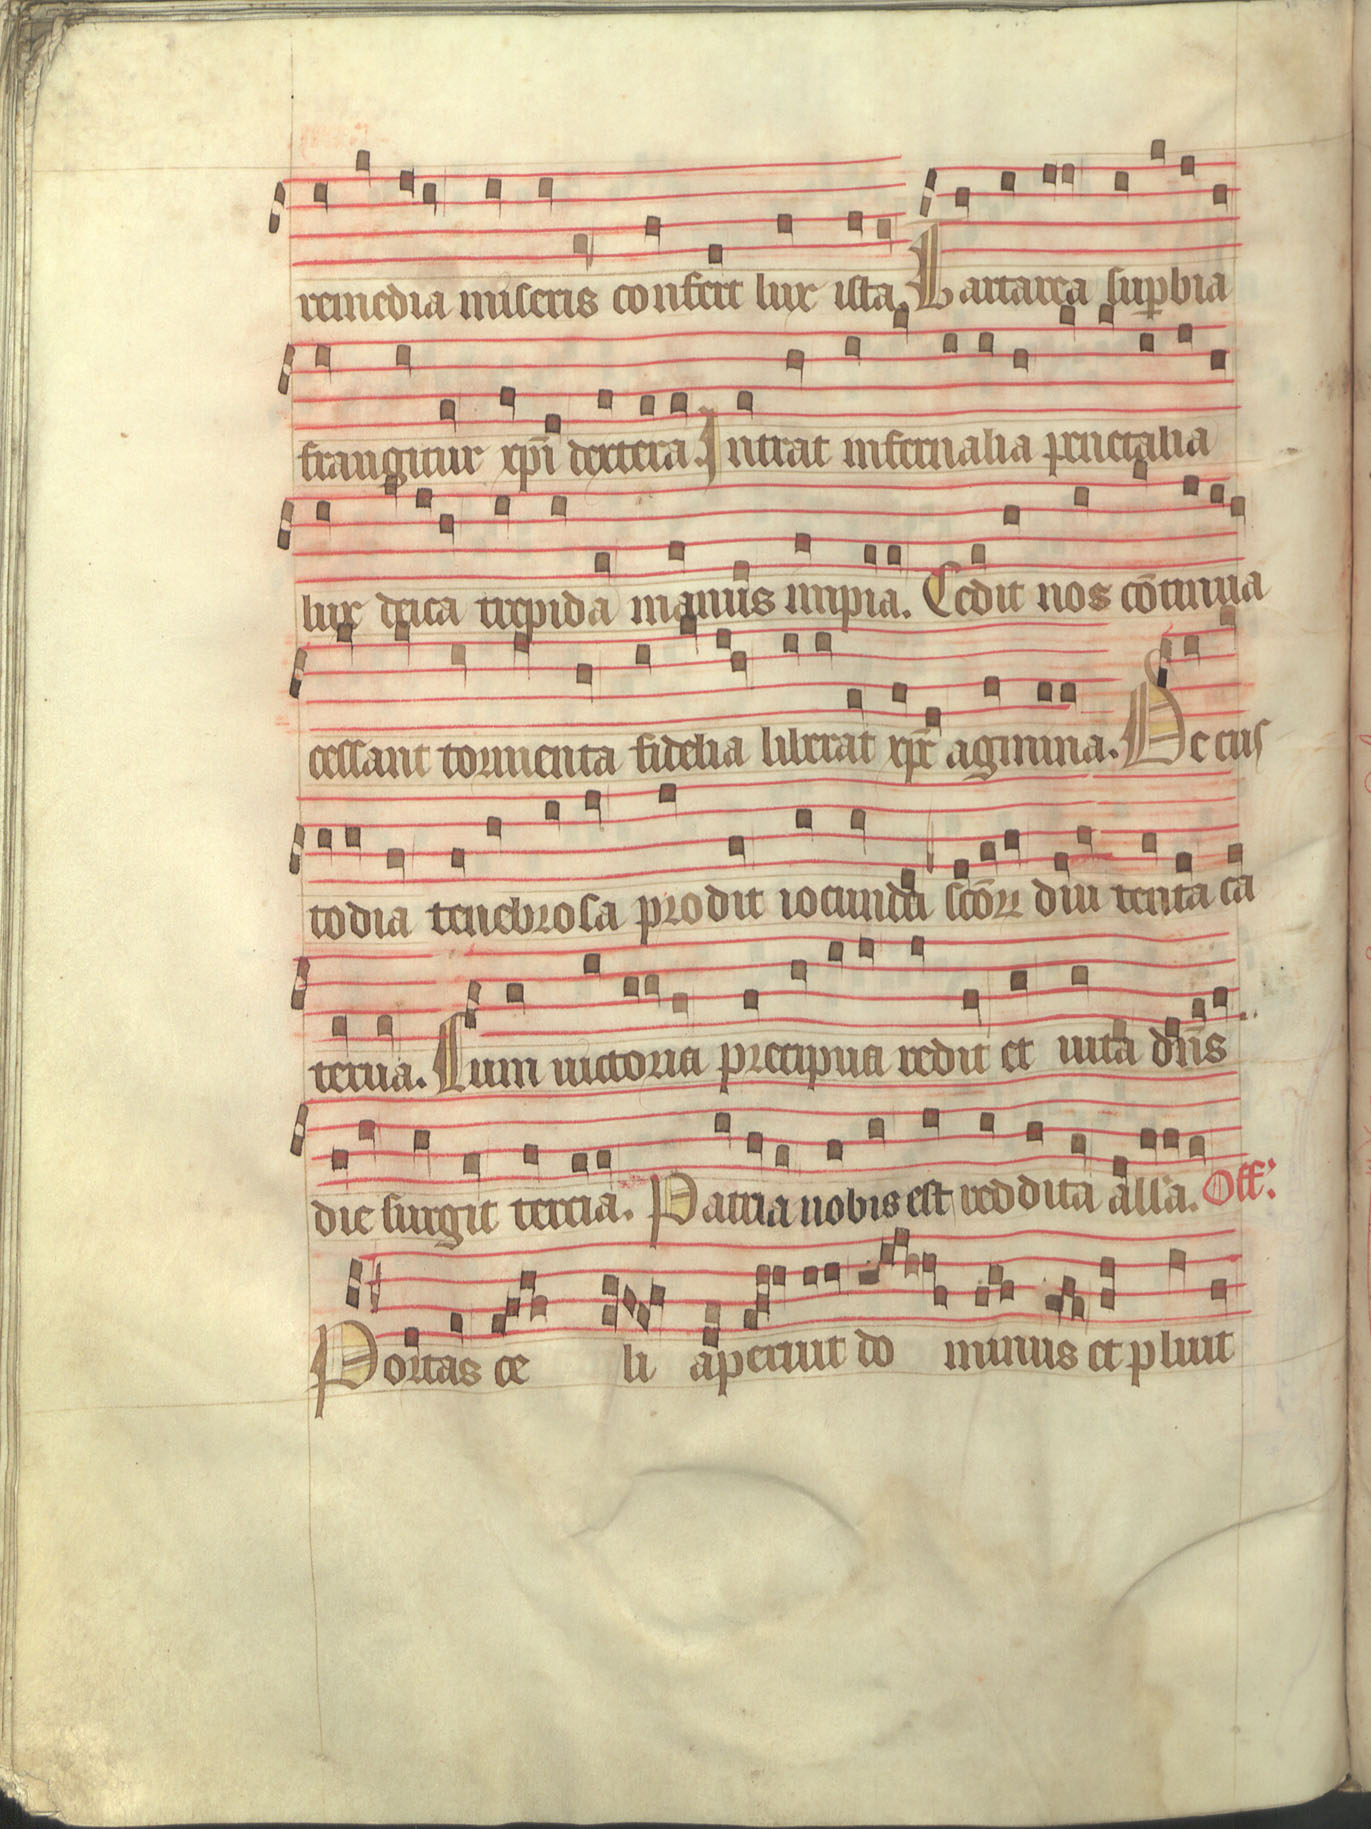 remedia miseris confert lux ista. Tartarea sup̱bia
frangitur xp̄i dextera. Intrat infernalia penetralia
lux deica trepida manus impia. Cedit nos cōtinua
cessant tormenta fidelia liberat xp̄c agmina. De cus
todia tenebrosa prodit iocunda sc̄oꝝ diu tenta ca
terua. Cum uictoria precipua redit et uita dn̄s
die surgit tercia. Patria nobis est reddita alla. Off:
Portas ce li aperuit do minus et pluit